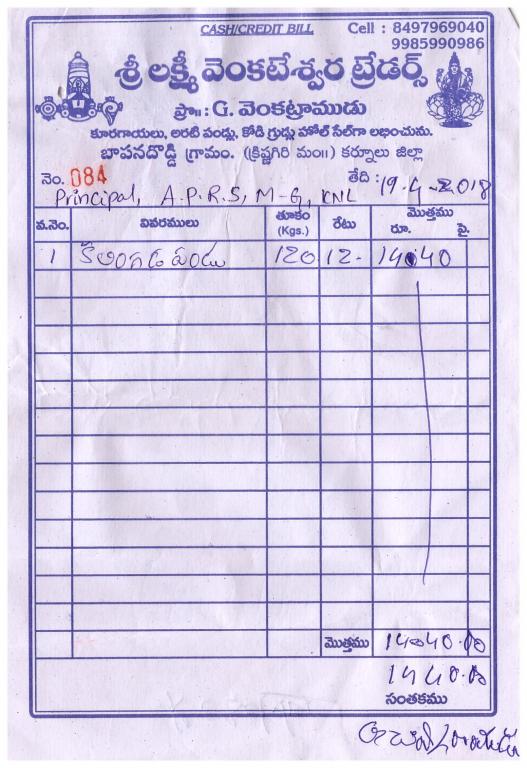 CASH/CREDIT BILL
Cell : 8497969040
9985990986
శ్రీ లక్ష్మీ వెంకటేశ్వర ట్రేడర్స్
ప్రొ॥: G. వెంకట్రాముడు
కూరగాయలు, అరటి పండ్లు, కోడి గ్రుడ్లు హోల్ సేల్‌గా లభించును.
బాపనదొడ్డి గ్రామం. (క్రిష్ణగిరి మం॥) కర్నూలు జిల్లా
నెం. 084 తేది : 19-4-2018
Principal, A.P.R.S, M-G, KNL
వ.నెం. వివరములు తూకం (Kgs.) రేటు మొత్తము రూ. పై.
1 కళింగడ పండు 120 12- 1440
మొత్తము 1440.00
1440.00
సంతకము